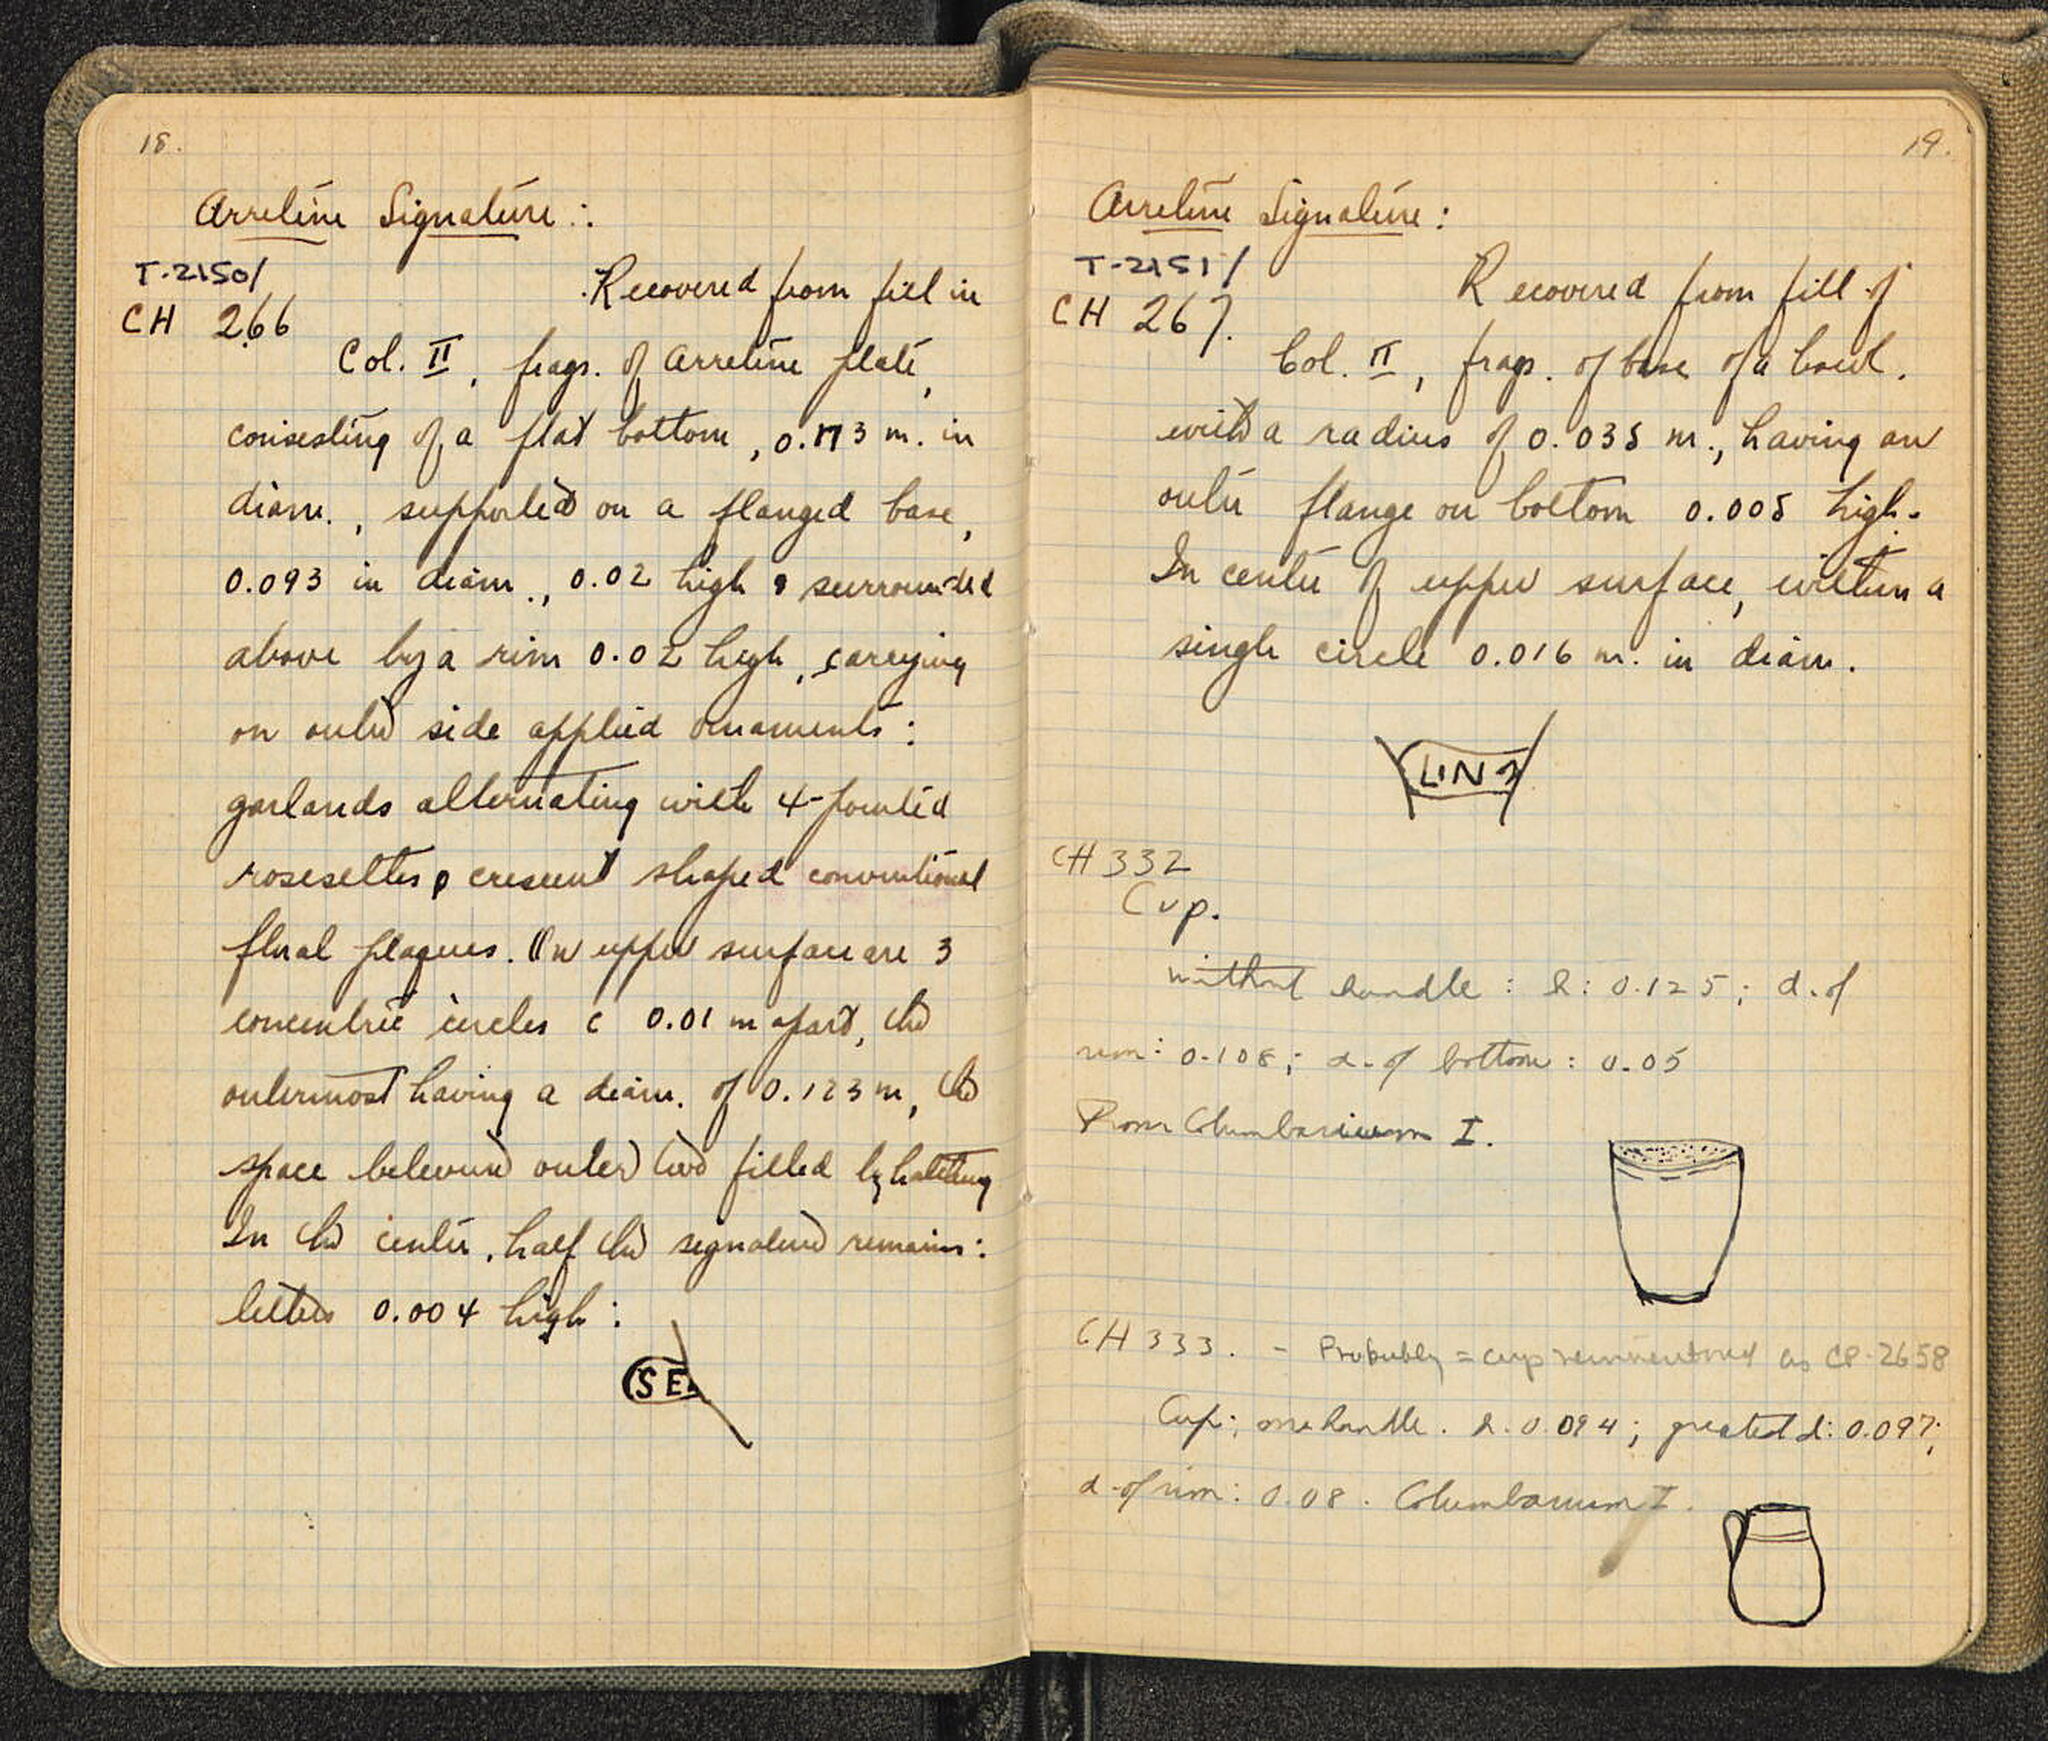 18.
Arretine Signature:
T-2150/
CH 266
Recovered from fill in
Col. II, frags. of Arretine plate,
consisting of a flat bottom, 0.173 m. in
diam., supported on a flanged base,
0.093 in diam., 0.02 high & surrounded
above by a rim 0.02 high, carrying
on outer side applied ornaments:
garlands alternating with 4-pointed
rosesettes & crescent shaped conventional
floral plaques. On upper surface are 3
concentric circles c 0.01 m apart, the
outermost having a diam. of 0.123 m, the
space between outer two filled by hatching
In the center, half the signature remains:
letters 0.004 high:
SE
19.
Arretine Signature:
T-2151/
CH 267.
Recovered from fill of
Col. II, frags. of base of a bowl.
with a radius of 0.035 m., having an
outer flange on bottom 0.005 high.
In center of upper surface, within a
single circle 0.016 m. in diam.
LIN
CH 332
Cup.
without handle: h: 0.125; d. of
rim: 0.108; d. of bottom: 0.05
From Columbarium I.
CH 333. - Probably = cup reinventoried as CP-2658
Cup; one handle. h. 0.094; greatest d: 0.097;
d. of rim: 0.08. Columbarium I.